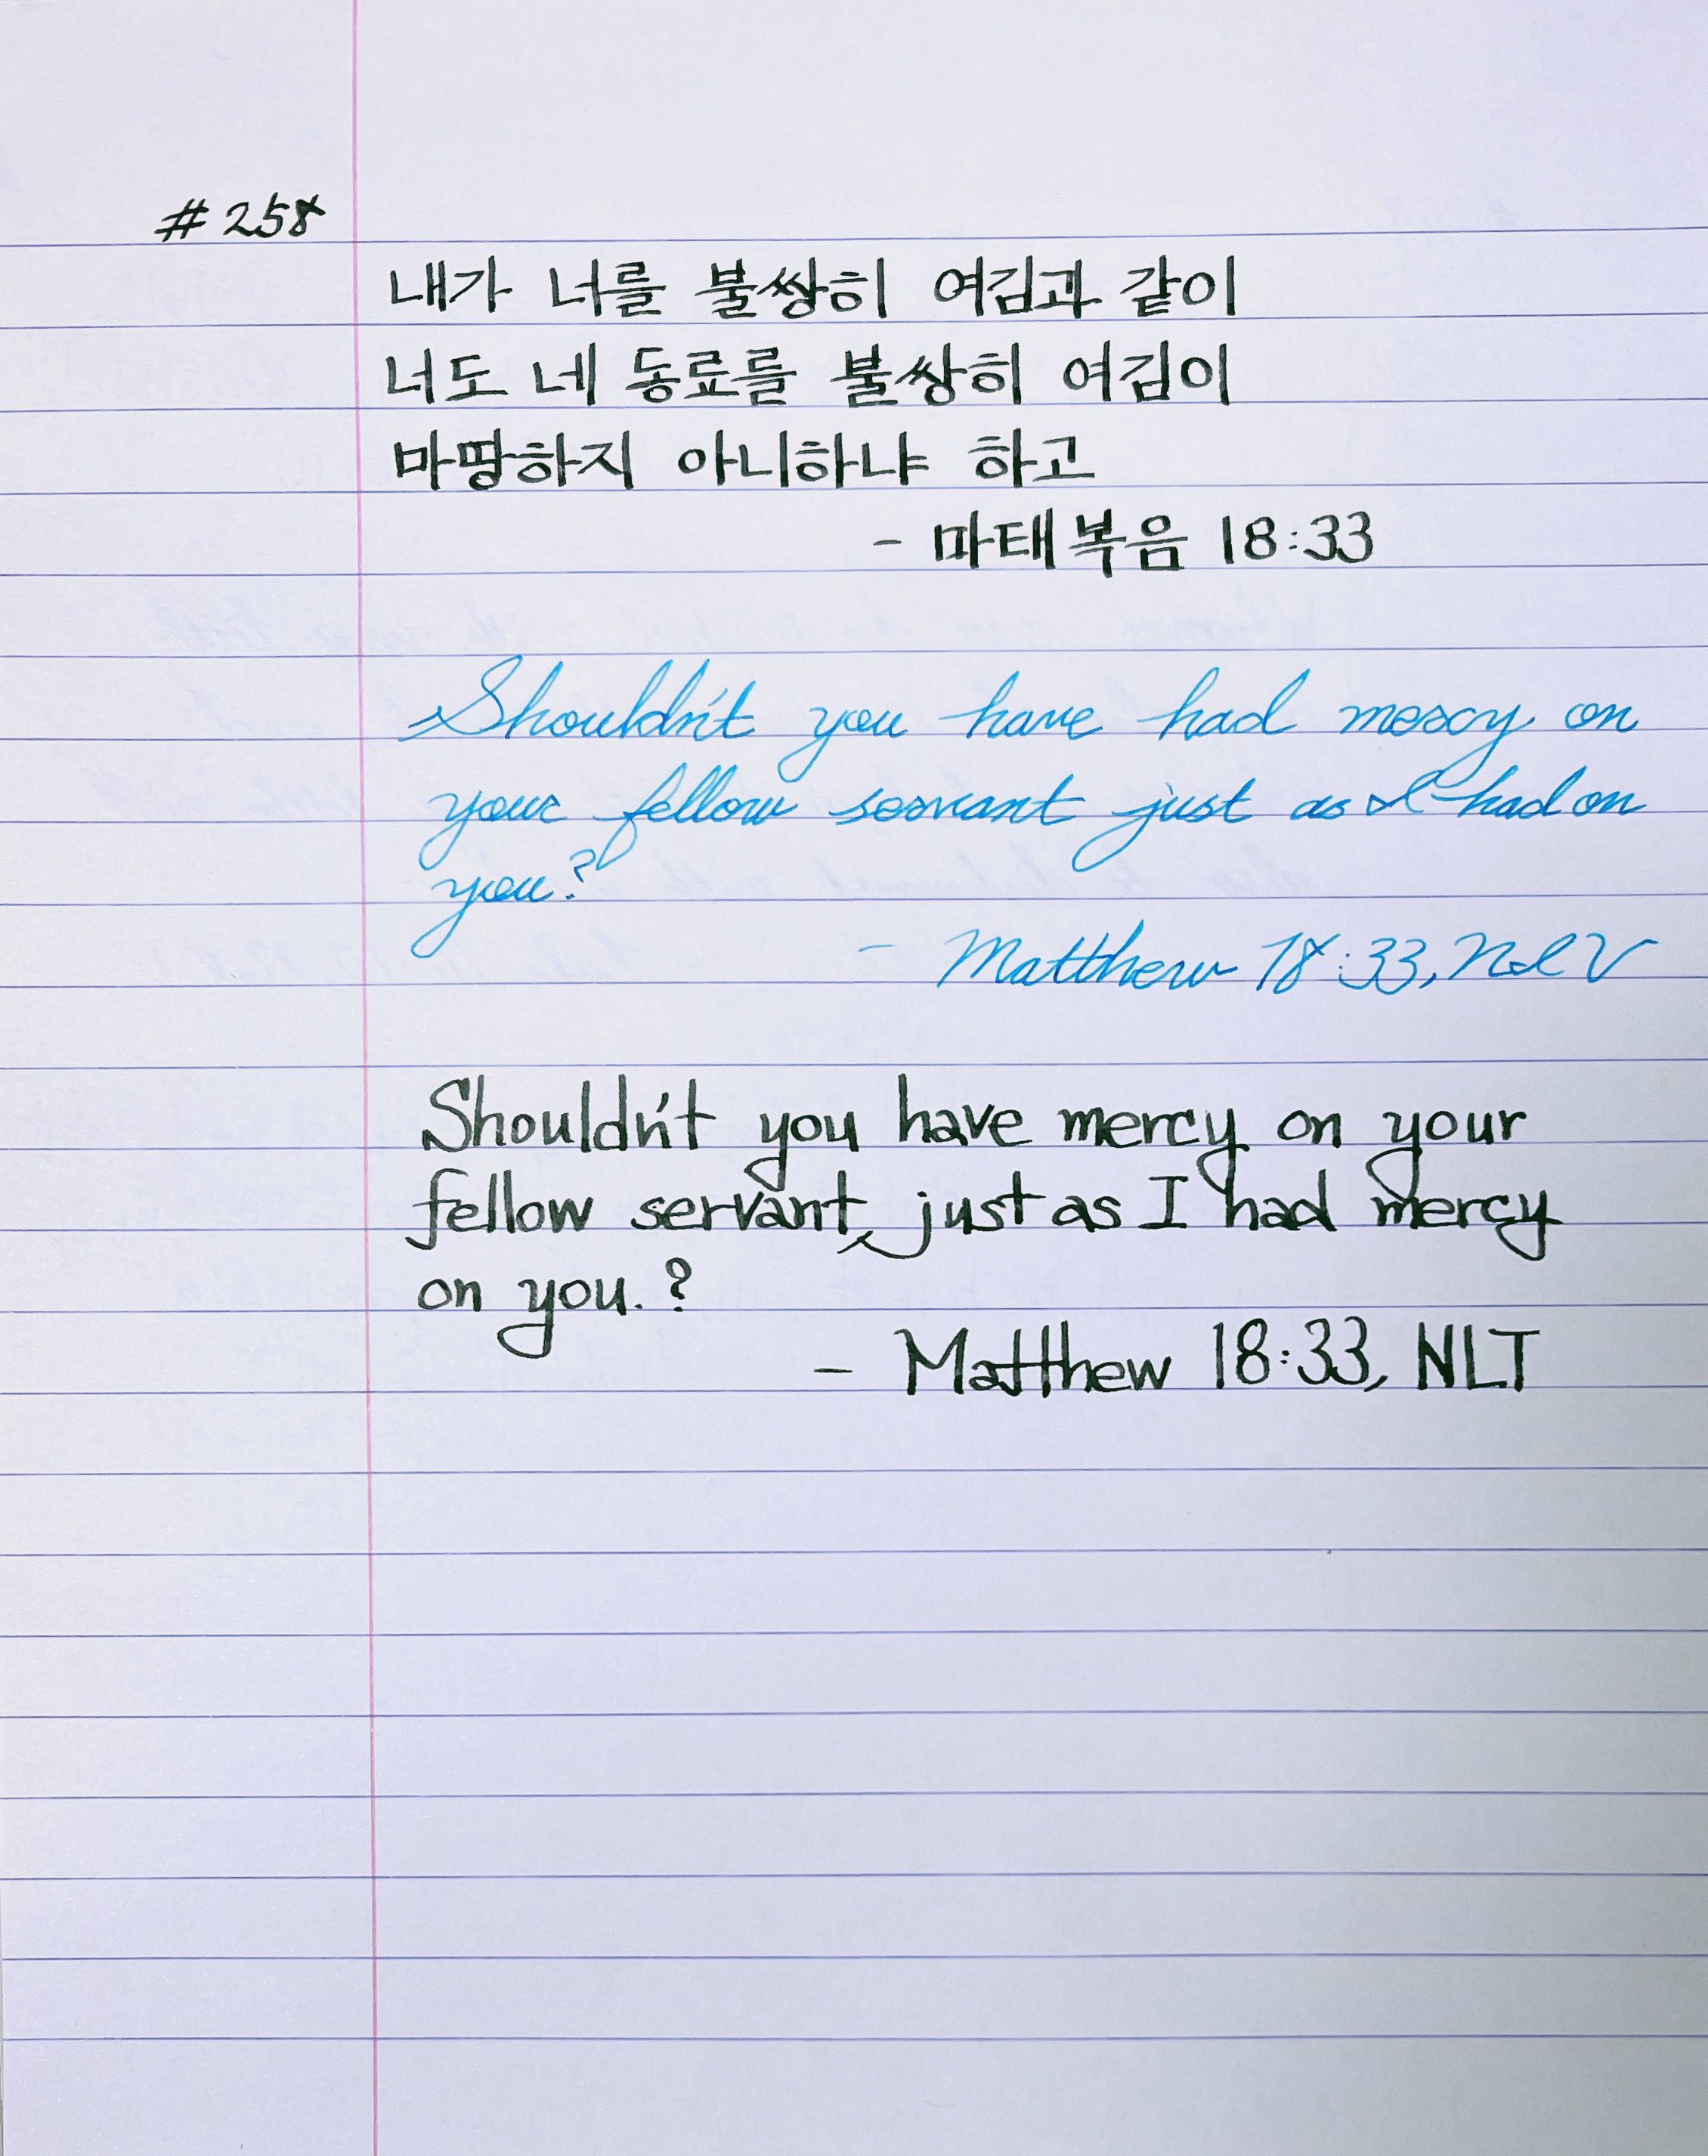 #258
내가 너를 불쌍히 여김과 같이
너도 네 동료를 불쌍히 여김이
마땅하지 아니하냐 하고
- 마태복음 18:33
Shouldn't you have had mercy on
your fellow servant just as I had on
you?
- Matthew 18:33, NIV
Shouldn't you have mercy on your
fellow servant, just as I had mercy
on you.?
- Matthew 18:33, NLT